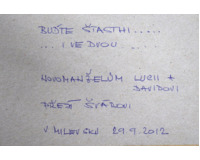 BUĎTE ŠŤASTNI.....
... I VE DVOU .....
NOVOMANŽELŮM LUCII +
DAVIDOVI
PŘEJÍ ŠVÁROVI
V MILEVSKU 29.9.2012